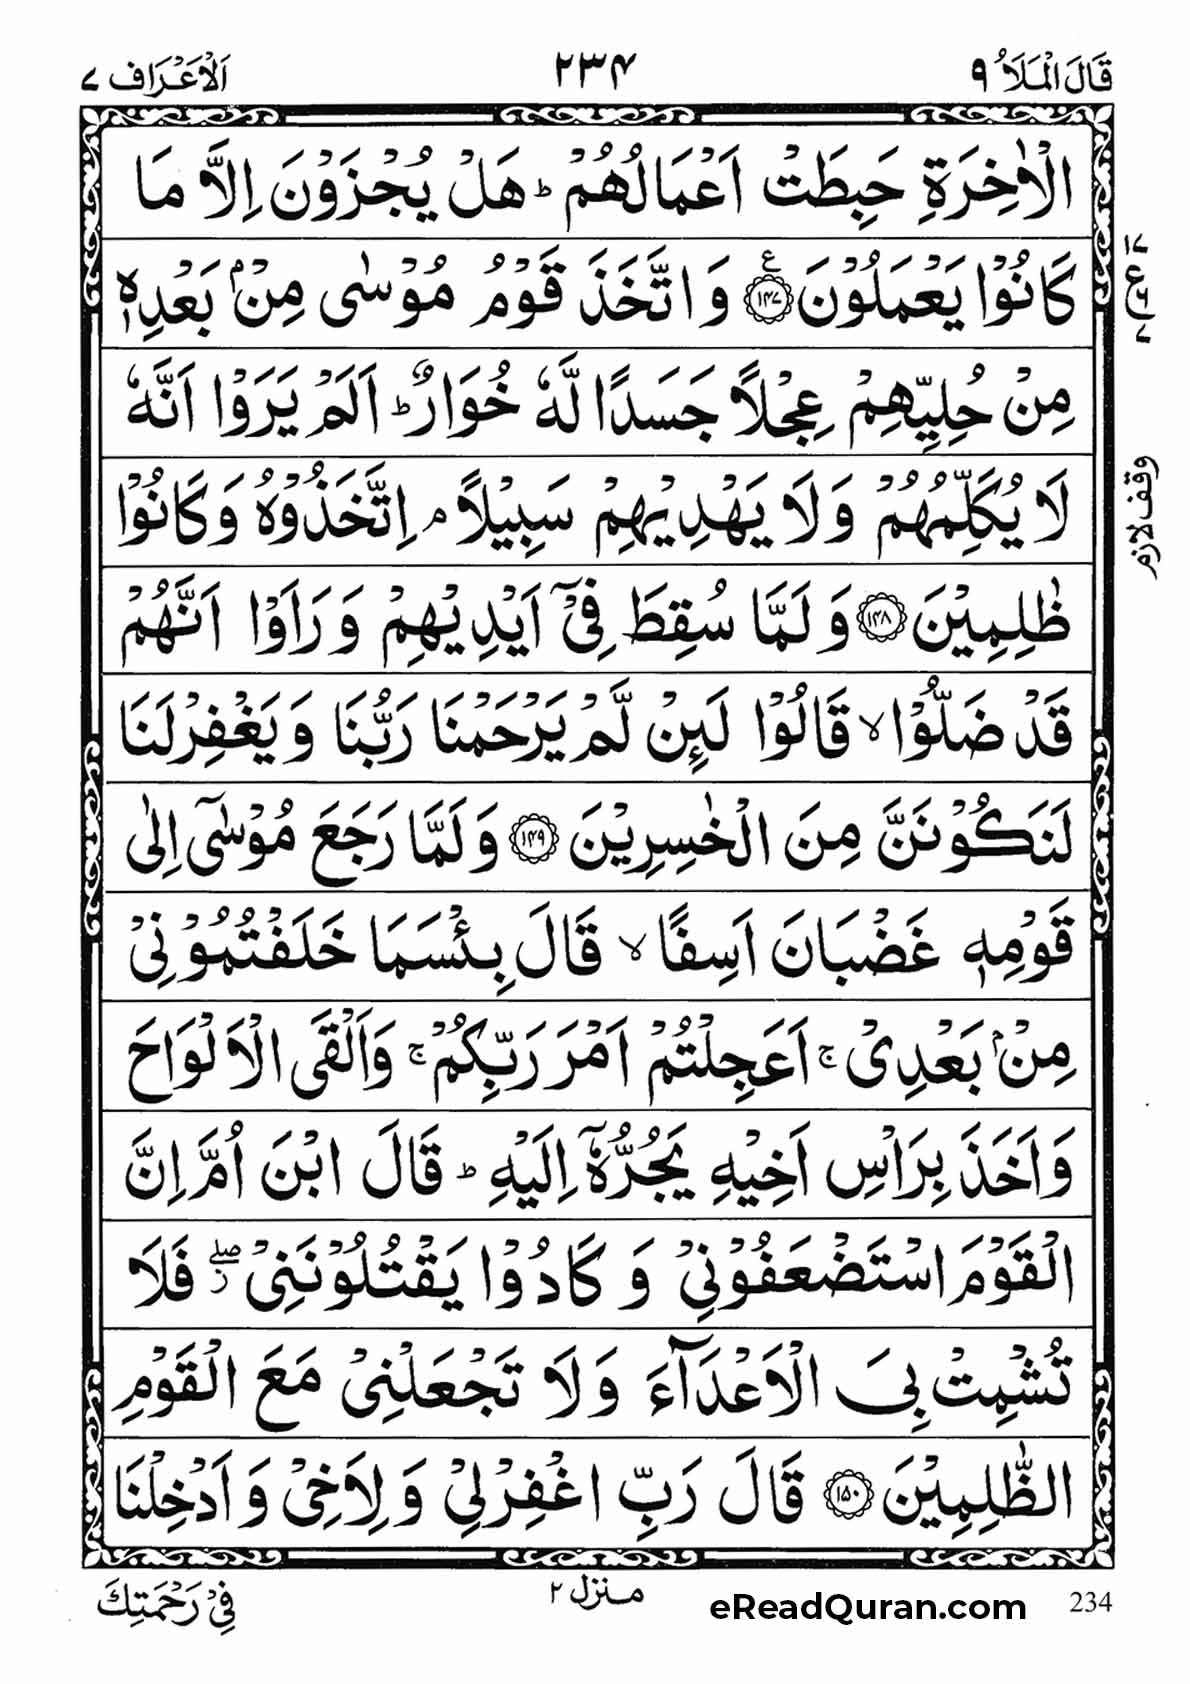 قَالَ الْمَلَاُ ۹ ۲۳۴ اَلْاَعْرَاف ۷
الْاٰخِرَةِ حَبِطَتْ اَعْمَالُهُمْ ؕ هَلْ يُجْزَوْنَ اِلَّا مَا
كَانُوْا يَعْمَلُوْنَ ﴿۱۴۷﴾ ع وَاتَّخَذَ قَوْمُ مُوْسٰى مِنْۢ بَعْدِهٖ
مِنْ حُلِيِّهِمْ عِجْلًا جَسَدًا لَّهٗ خُوَارٌ ؕ اَلَمْ يَرَوْا اَنَّهٗ
لَا يُكَلِّمُهُمْ وَلَا يَهْدِيْهِمْ سَبِيْلًا ۘ اِتَّخَذُوْهُ وَكَانُوْا
ظٰلِمِيْنَ ﴿۱۴۸﴾ وَلَمَّا سُقِطَ فِيْٓ اَيْدِيْهِمْ وَرَاَوْا اَنَّهُمْ
قَدْ ضَلُّوْا ۙ قَالُوْا لَئِنْ لَّمْ يَرْحَمْنَا رَبُّنَا وَيَغْفِرْ لَنَا
لَنَكُوْنَنَّ مِنَ الْخٰسِرِيْنَ ﴿۱۴۹﴾ وَلَمَّا رَجَعَ مُوْسٰٓى اِلٰى
قَوْمِهٖ غَضْبَانَ اَسِفًا ۙ قَالَ بِئْسَمَا خَلَفْتُمُوْنِيْ
مِنْۢ بَعْدِيْ ۚ اَعَجِلْتُمْ اَمْرَ رَبِّكُمْ ۚ وَاَلْقَى الْاَلْوَاحَ
وَاَخَذَ بِرَاْسِ اَخِيْهِ يَجُرُّهٗٓ اِلَيْهِ ؕ قَالَ ابْنَ اُمَّ اِنَّ
الْقَوْمَ اسْتَضْعَفُوْنِيْ وَكَادُوْا يَقْتُلُوْنَنِيْ ۖز فَلَا
تُشْمِتْ بِيَ الْاَعْدَآءَ وَلَا تَجْعَلْنِيْ مَعَ الْقَوْمِ
الظّٰلِمِيْنَ ﴿۱۵۰﴾ قَالَ رَبِّ اغْفِرْ لِيْ وَلِاَخِيْ وَاَدْخِلْنَا
۷
ع ۶
۷
وقف لازم
فِيْ رَحْمَتِكَ
منزل ۲
eReadQuran.com
234